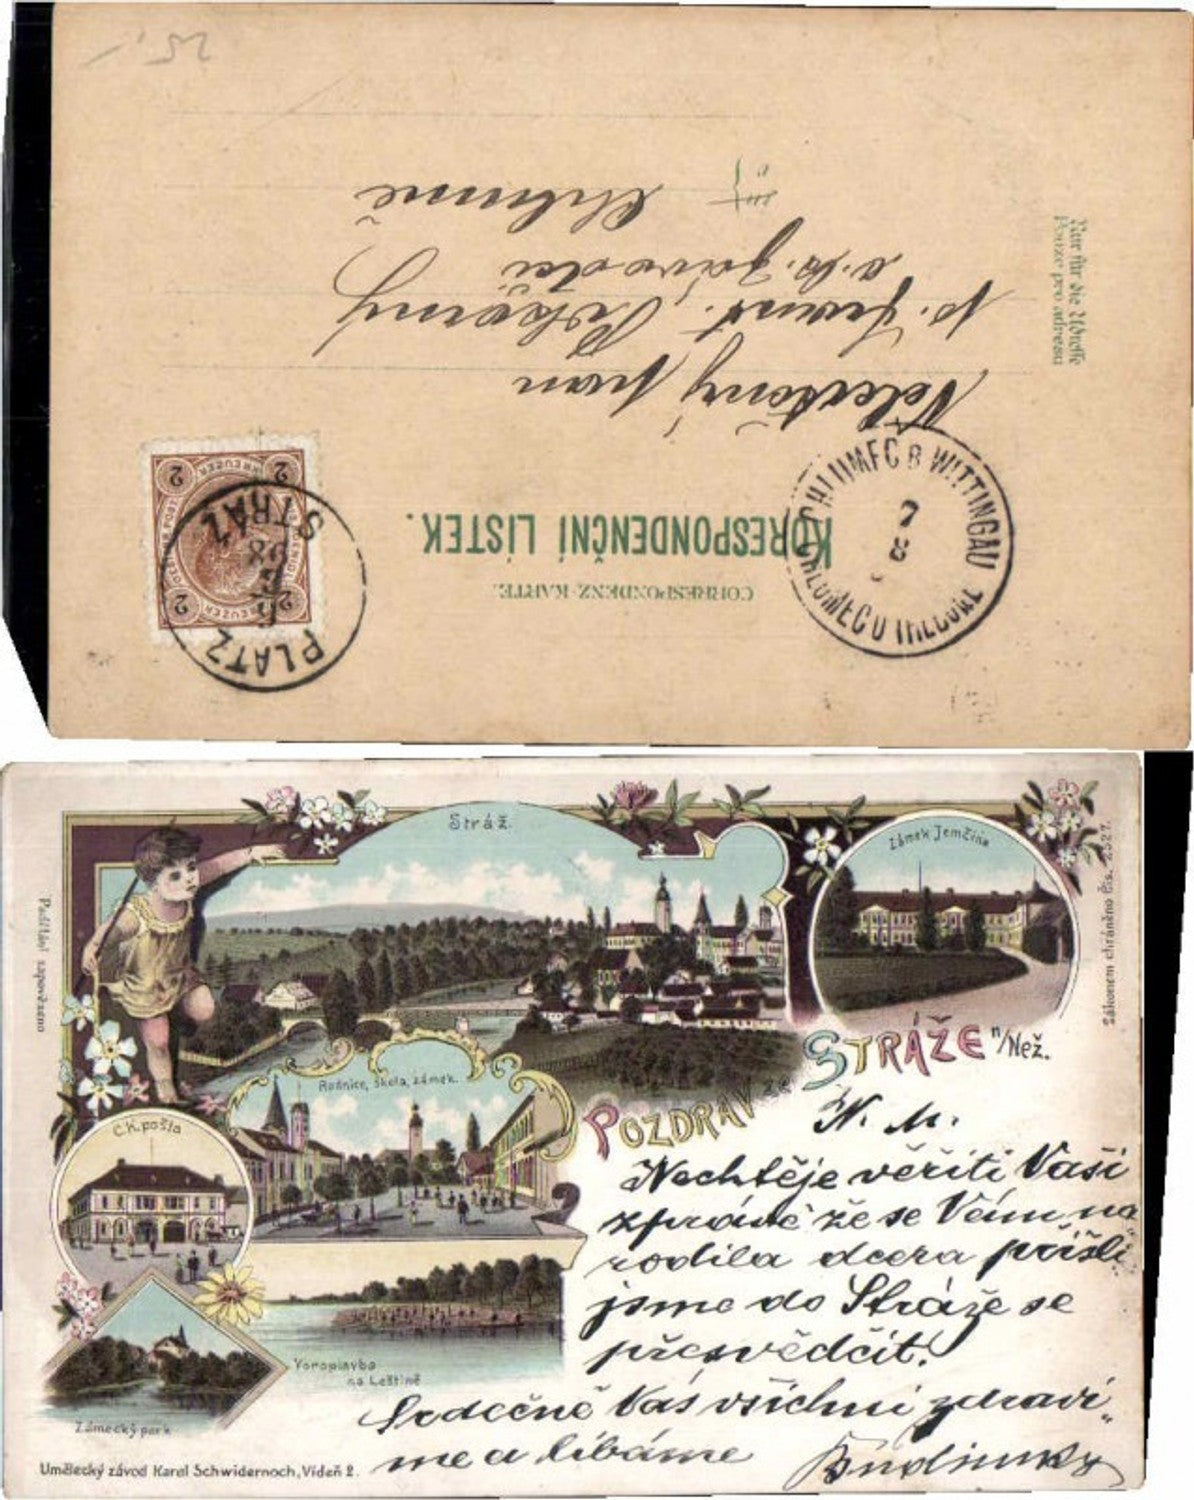 25,-
CORRESPONDENZ-KARTE.
KORESPONDENČNÍ LÍSTEK.
CHLUMEC B WITTINGAU
CHLUMEC U TŘEBONĚ
7
8
PLATZ
98
STRÁŽ
2 KREUZER 2
2 KREUZER 2
pan
p. Frant. Pokorný
c. k.
Chlumě
Nur für die Adresse
Pouze pro adresu
Stráž.
Zámek Jemčina
Radnice, škola, zámek.
C.K. pošta
Voroplavba
na Leštině
Zámecký park
POZDRAV ze STRÁŽE n/Než.
Padělání zapovězeno
Zákonem chráněno Čís. 2527.
N. M.
Nechtěje věřiti Vaší
zprávě že se Vám na
rodila dcera přišli
jsme do Stráže se
přesvědčit.
Srdečně Vás všichni zdraví
me a líbáme
Umělecký závod Karel Schwidernoch, Vídeň 2.